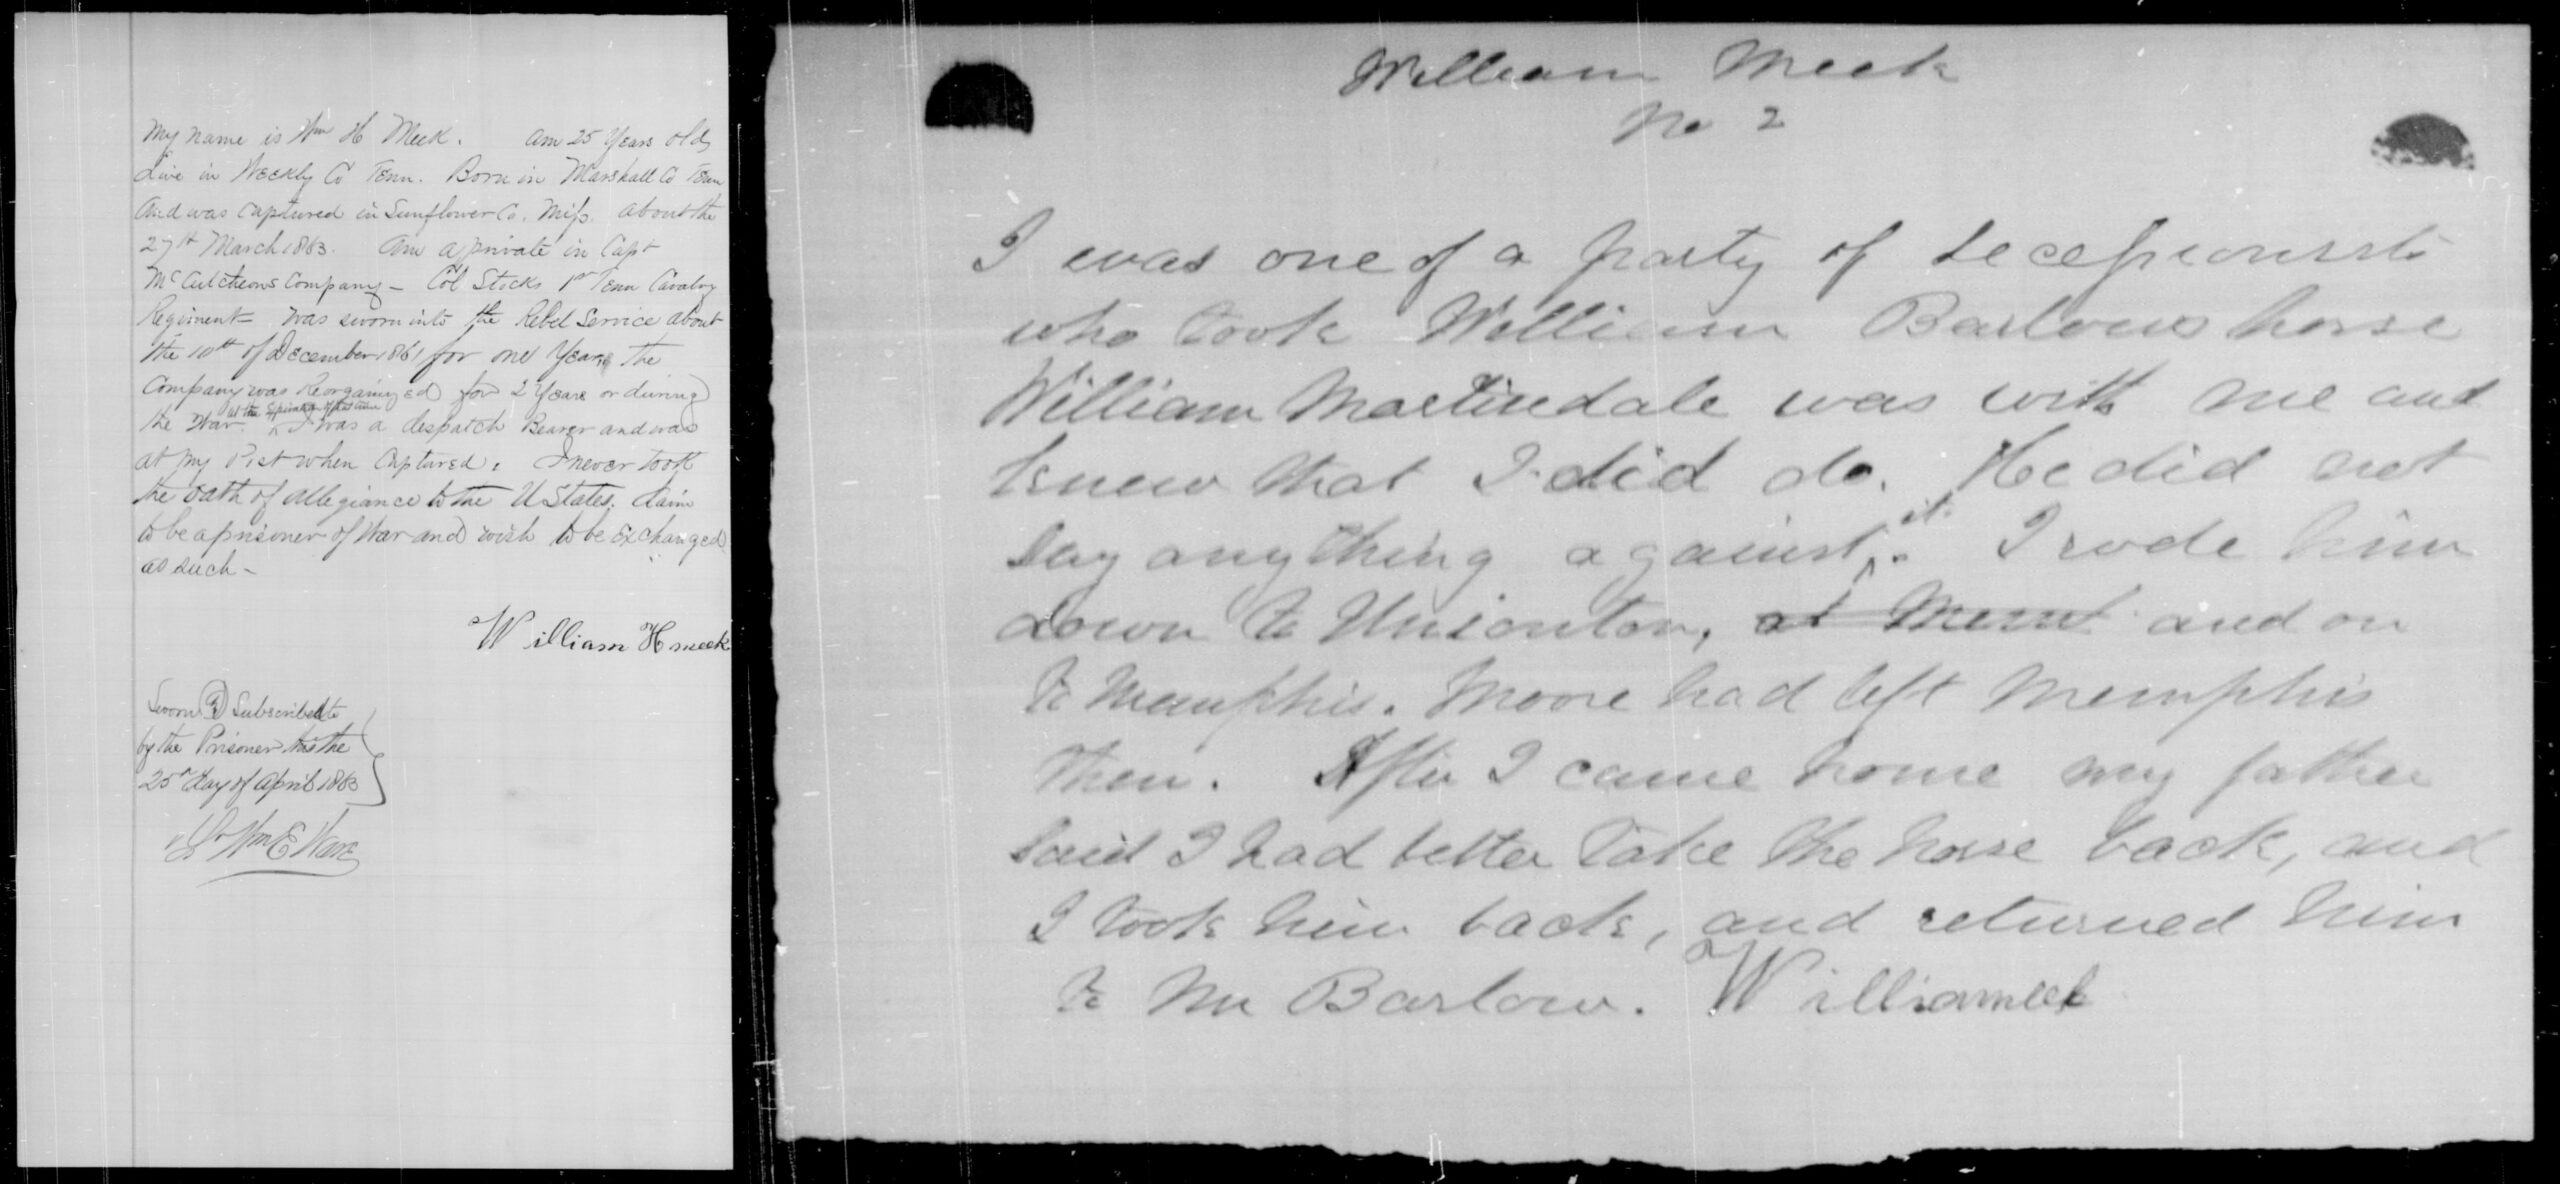 My name is Wm H Meek. Am 25 Years old,
Live in Weekly Co Tenn. Born in Marshall Co Tenn
And was captured in Sunflower Co. Miss. about the
27th March 1863. Am a private in Capt
McCutcheons Company – Col Stocks 1st Tenn Cavalry
Regiment – was sworn into the Rebel Service about
the 10th of December 1861 for one Year, the
Company was Reorganized for 2 Years or during
at the Expiration of that time
the War. I was a despatch Bearer and was
at my Post when Captured. I never took
the oath of allegiance to the U States. Claim
to be a prisoner of War and wish to be Exchanged
as such –
William H meek
Sworn & Subscribed to
by the Prisoner this the
25th day of April 1863
Wm E Ware
William Meek
No 2
I was one of a party of secessionists
who took William Barlows horse
William Martindale was with me and
knew that I did do. He did not
say anything against it. I rode him
down to Unionton, at Mem and on
to Memphis. Moore had left Memphis
then. After I came home my father
said I had better take the horse back, and
I took him back, and returned him
to Mr Barlow. Williameek